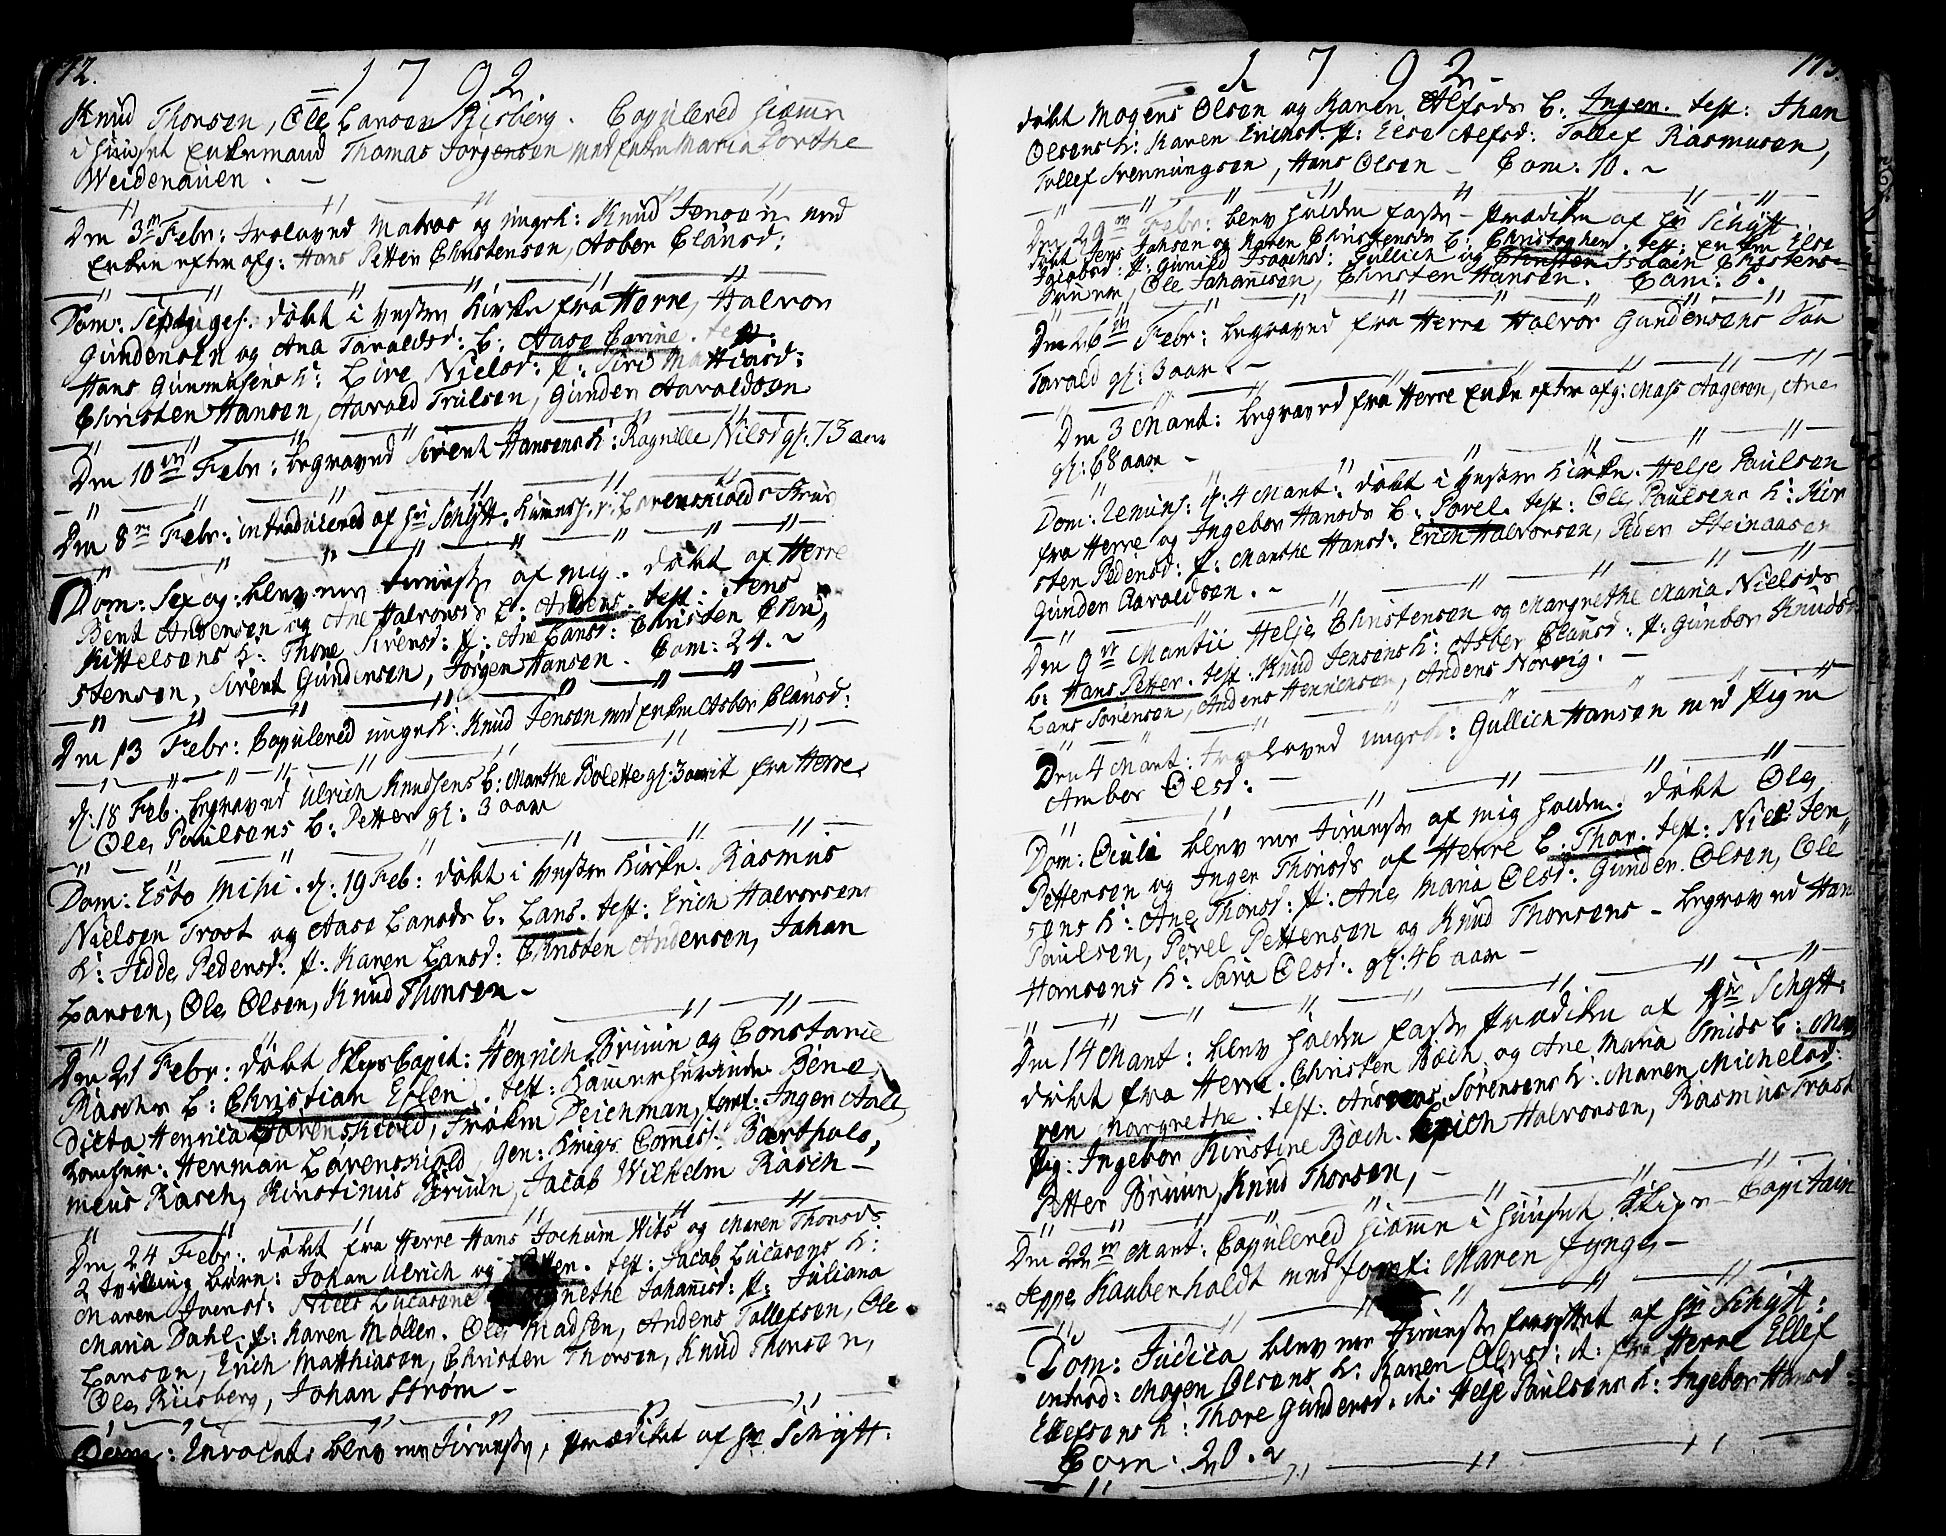 12.
1792
Knud Thorsen, Ole Larsen Risberg. Copulered hiemme
i Huuset Enkemand Thomas Jorgensen med Enken Maria Dorthe
Weidenauen. -
Den 3m Febr: troloved Matros og ungk: Knud Jensen med
Enken efter afg: Hans Petter Christensen, Asber Clausd:
Dom: Septuages. döbt i Vestre Kirke fra Herre, Halvor
Gundersen og Ana Taraldsd: b: Aase Carine. test:
Hans Gunmusens k: Live Nielsd: p: Siri Matthiasd:
Christen Hansen, Aarald Trulsen, Gunder Aaraldsen
Den 10de Febr: begraved Sivent Hansens k: Ragnille Nilsd gl: 75 aar
Den 8m Febr: introducered af Hr Schytt. Løvenskiolds Frue
Dom: Sexag: blev mes tieniste af mig. döbt af Herre
Bent Andersen og Ane Halvorsds b: Anders. test: Jens
Kittelsens k: Thore Sivensd: p: Ane Larsd: Christen Chri,
stensen, Sivent Gundersen, Jörgen Hansen. Com: 24. ~
Den 13 Febr: Copulered ungk: Knud Jensen med Enken Asber Clausd:
d: 18 Feb. begraved Ulrich Knudsens b: Marthe Bolette gl: 3 aar fra Herre
Ole Paulsens b: Petter gl: 3 aar
Dom: Esto Mihi. d: 19 Feb: döbt i Vestre Kirke. Rasmus
Nielsen Trost og Aase Larsds b. Lars. test: Erich Halvorsens
k: Jidde Pedersd: p: Karen Larsd: Christen Andersen, Johan
Larsen, Ole Olsen, Knud Thorsen -
Den 21 Febr: döbt Skips Capit: Henrich Bruun og Constanie
Raschs b: Christian Eslen. test: Kammerherinde Bene,
dicta Henrica Lövenskiold, Fröken Deichman, Jomf: Inger Aall
Herman Lövenskiold, Gen: Krigs Commis: Bartholo,
meus Rasch, Kirstinus Bruun, Jacob Wilhelm Rasch -
Den 24 Febr: döbt fra Herre Hans Jochum Nils og Maren Thorsds
2 tvilling börn: Johan Ulrich og Petter. test: Jacob Lucasens k:
Maren Iversd: Niels Lucasens Johannisd: p: Juliana
Maria Dahl. p: Karen Möller. Ole Madsen, Anders Tollefsen, Ole
Larsen, Erich Matthiasen, Christen Thorsen, Knud Thorsen,
Ole Riisberg, Johan Ström -
Dom: Invocat: blev mes tieniste, prædiket af Hr Schytt:
1792
113.
döbt Mogens Olsen og Karen Alfsds b: Inger. test: Jhan
Olsens k: Karen Erichsd: p: Else Alfsd: Tollef Rasmusen,
Tollef Svenningsen, Hans Olsen - Com: 10. ~
Den 29m Febr: blev holden faste-prædiken af Hr Schytt.
döbt Jens Jahsen og Karen Christensds b: Christopher. test: Enken Else
Jacobsd: p: Gunild Isaachsd: Gullich og Isaach Christens-
Bruun, Ole Johannisen, Christen Hansen. Com: 6.
Den 26m Febr: begraved fra Herre Halvor Gundersens Sön
Tarald gl: 3 aar. -
Den 3 Mart: begraved fra Herre Enken efter afg: Mass Aagesen, Ane
gl: 68 aar -
Dom: Reminis: d: 4 Mart: döbt i Vestre Kirke. Helje Paulsen
fra Herre og Ingebor Hansds b: Povel. test: Ole Paulsens k: Kir
sten Pedersd: p: Marthe Hansd: Erich Halvorsen, Peder Steinaasen
Gunder Aaraldsen. -
Den 9de Martii Helje Christensen og Margrethe Maria Nielsds
b: Hans Petter. test. Knud Jensens k: Asber Clausd: p: Gunbor Knudsd
Lars Sörensen, Anders Henrichsen, Anders Norvig. -
Den 4 Mart: trolovedd ungk: Gullich Hansen med Pigen
Amber Olsd: -
Dom: Oculi blev mes tieniste af mig holden. döbt Ole
Pettersen og Inger Thorsds af Herre b: Thor. test: Niels Jen,
sens k: Ane Thorsd: p: Ane Maria Olsd: Gunder Olsen, Ole
Paulsen, Povel Pettersen og Knud Thorsens - begraved Han
Hansens k: Sara Olsd: gl: 46 aar -
Den 14 Mart: blev holden faste prædiken af Hr Schytt:
döbt fra Herre. Christen Bæch og Ane Maria Smids b: Ma
ren Margrethe. test: Andreas Sörensens k: Maren Michelsd:
pig: Ingebor Kirstine Bæch. Erich Halvorsen, Rasmus Trost
Petter Bruun, Knud Thorsen, -
Den 22m Mart: Copulered hiemme i Huuset Skips Capitain
Seppe Kaabenholdt med Jomf: Maren Jynge -
Dom: Judica blev mes tieniste forrettet af Hr Schytt:
introd: Mogen Olsens k: Karen Alfsd: d: fra Herre Ellef
Ellefsens k: Thore Gundersd: Helje Paulsens k: Ingebor Hansd:
Com: 20. ~